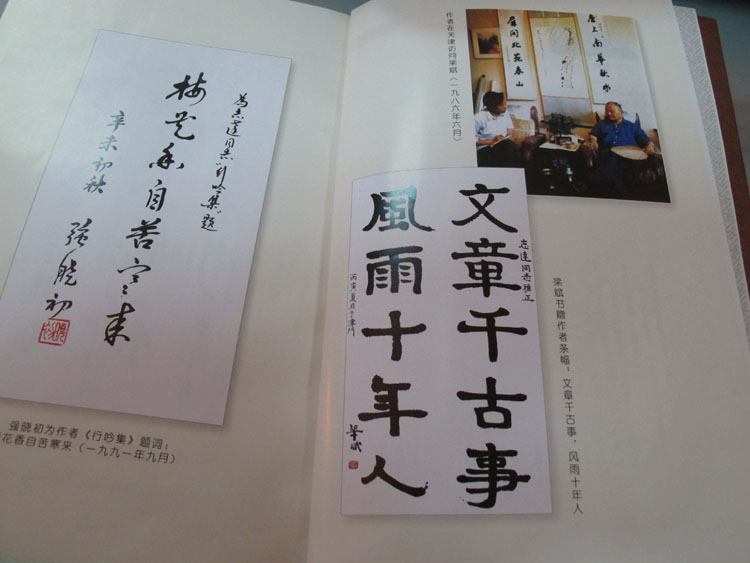 为志达同志《行吟集》题
梅花香自苦寒来
辛未初秋
强晓初
强晓初为作者《行吟集》题词：
花香自苦寒来（一九九一年九月）
上南华秋水
屏间北苑春山
作者在天津访问梁斌（一九八六年六月）
文章千古事
志達同志雅正
風雨十年人
丙寅夏月于津門
梁斌
梁斌书赠作者条幅：文章千古事，风雨十年人